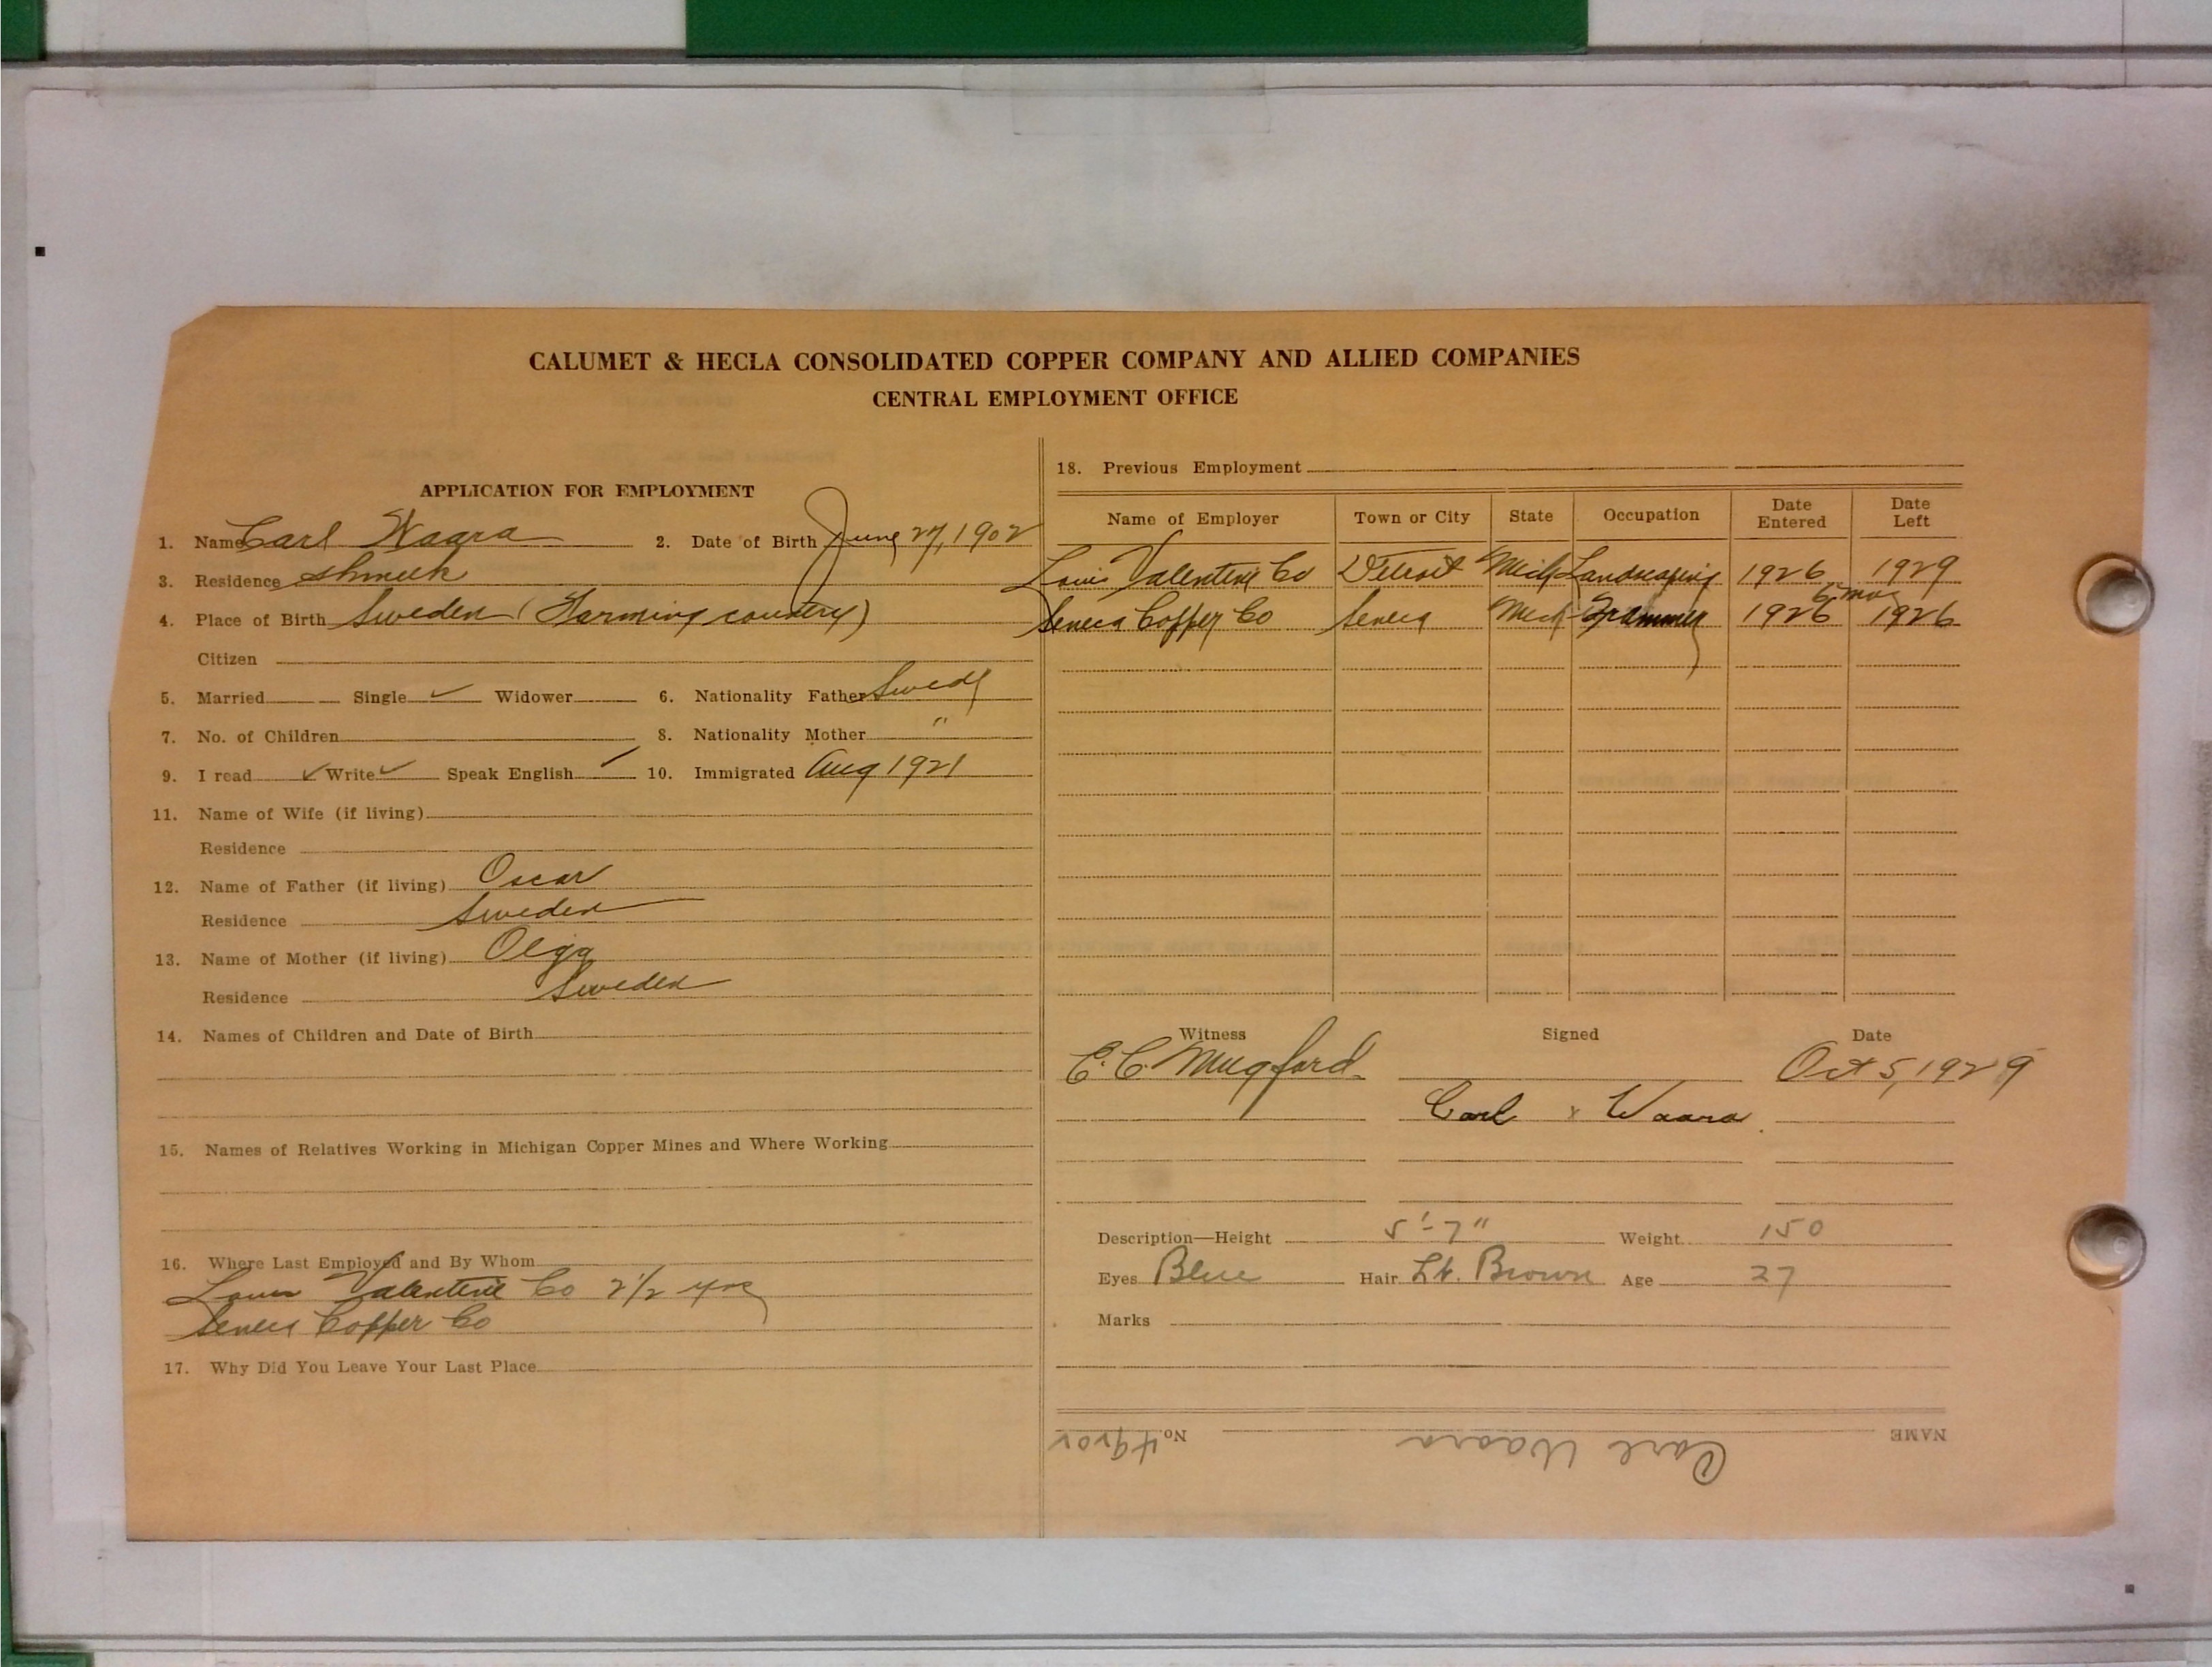 CALUMET & HECLA CONSOLIDATED COPPER COMPANY AND ALLIED COMPANIES
CENTRAL EMPLOYMENT OFFICE
APPLICATION FOR EMPLOYMENT
1. Name Carl Waara 2. Date of Birth June 27, 1902
3. Residence Ahmeek
4. Place of Birth Sweden (Farming country)
Citizen
5. Married Single ✓ Widower 6. Nationality Father Swede
7. No. of Children 8. Nationality Mother "
9. I read ✓ Write ✓ Speak English ✓ 10. Immigrated Aug 1921
11. Name of Wife (if living)
Residence
12. Name of Father (if living) Oscar
Residence Sweden
13. Name of Mother (if living) Olga
Residence Sweden
14. Names of Children and Date of Birth
15. Names of Relatives Working in Michigan Copper Mines and Where Working
16. Where Last Employed and By Whom
Louis Valentine Co 2 1/2 yrs
Seneca Copper Co
17. Why Did You Leave Your Last Place
18. Previous Employment
Name of Employer Town or City State Occupation Date Entered Date Left
Louis Valentine Co Detroit Mich Landscaping 1926 1929
6 mos
Seneca Copper Co Seneca Mich Trammer 1926 1926
Witness Signed Date
E. C. Mugford Oct 5, 1929
Carl x Waara
Description—Height 5'-7" Weight 150
Eyes Blue Hair Lt. Brown Age 27
Marks
NAME Carl Waara No. 49202